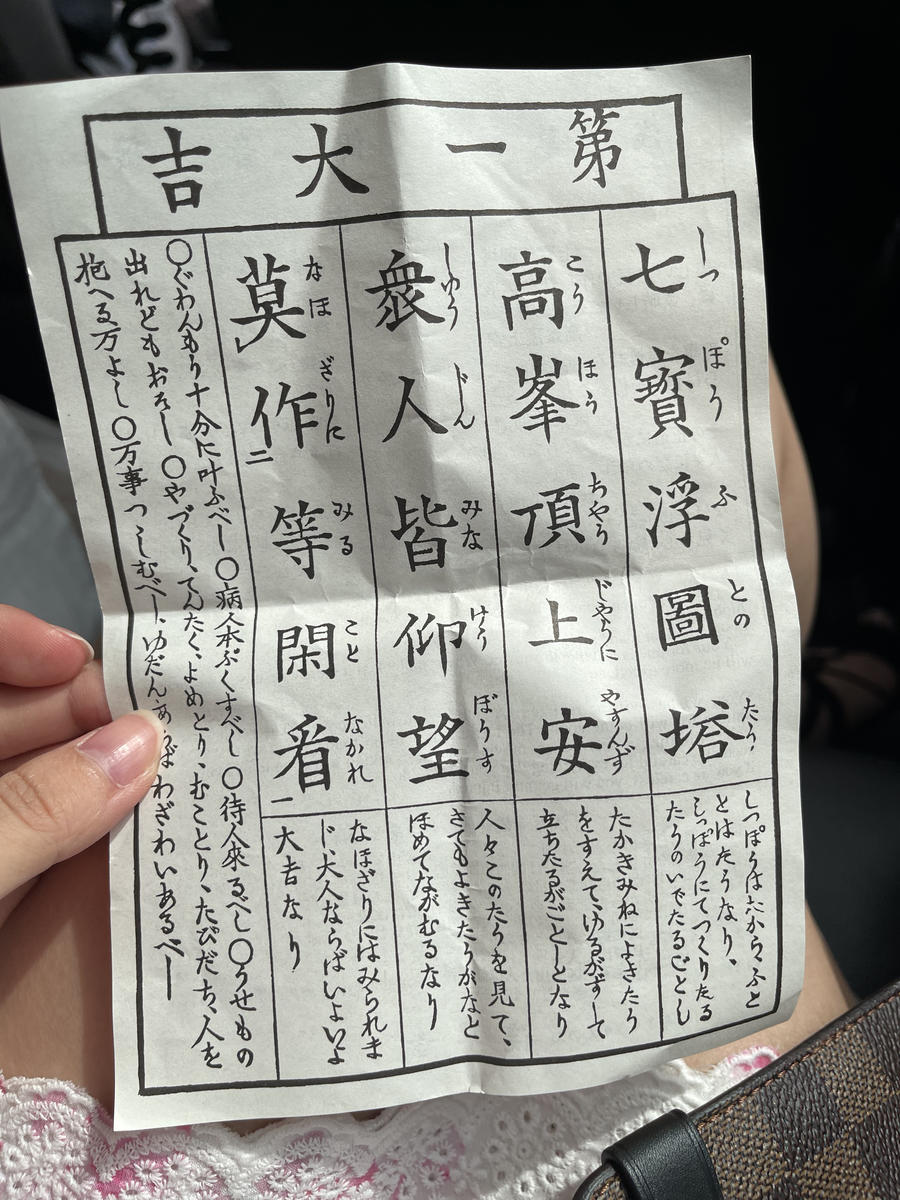 第一大吉
七寶浮圖塔
しつぽうふとのたう
しつぽうは六からふと
とはたうなり、
しつぽうにてつくりたる
たうのいでたるごとし
高峯頂上安
こうほうちやうじやうにやすんず
たかきみねによきたう
をすえて、ゆるがずして
立ちたるがごとしとなり
衆人皆仰望
しゆうじんみなけうぼうす
人々このたうを見て、
さてもよきたうかなと
ほめてながむるなり
莫作二等閑看一
なほざりにみることなかれ
なほざりにはみられま
じ、大人ならばいよいよ
大吉なり
〇ぐわんもう十分に叶ふべし〇病人本ぷくすべし〇待人來るべし〇うせもの
出れどもおそし〇やづくり、てんたく、よめとり、むことり、たびだち、人を
抱へる万よし〇万事つゝしむべし、ゆだんあらばわざわいあるべし